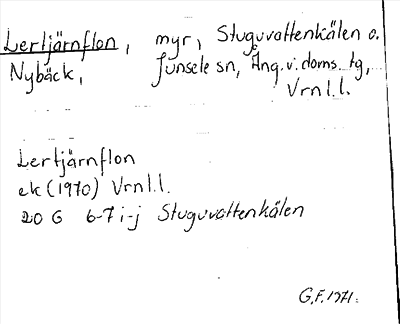 Lertjärnflon, myr, Stuguvattenkälen o.
Nybäck, Junsele sn, Ång. v. doms. tg,
Vrnl.l.
Lertjärnflon
ek (1970) Vrnl.l.
20 G 6-7 i-j Stuguvattenkälen
G.F. 1971.